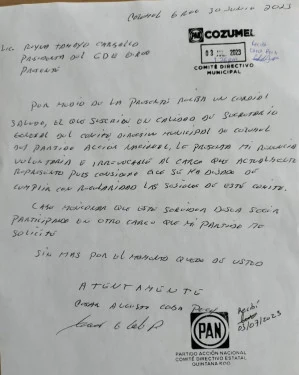 COZUMEL Q ROO 30 JUNIO 2023
LIC
PRESIDENTA DEL CDE Q ROO
PRESENTE
COZUMEL
03 JUL. 2023
COMITÉ DIRECTIVO
MUNICIPAL
POR MEDIO DE LA PRESENTE RECIBA UN CORDIAL
SALUDO, EL QUE SUSCRIBE EN CALIDAD DE SECRETARIO
GENERAL DEL COMITE DIRECTIVO MUNICIPAL DE COZUMEL
DEL PARTIDO ACCION NACIONAL, LE PRESENTO MI RENUNCIA
VOLUNTARIA E IRREVOCABLE AL CARGO QUE ACTUALMENTE
REPRESENTO PUES CONSIDERO QUE SE HA DEJADO DE
CUMPLIR CON REGULARIDAD LAS SESIONES DE ESTE COMITE.
CABE MENCIONAR QUE ESTE SERVIDOR DESEA SEGUIR
PARTICIPANDO EN OTRO CARGO QUE MI PARTIDO ME
SOLICITE
SIN MAS POR EL MOMENTO QUEDO DE USTED
ATENTAMENTE
AUGUSTO
Recibi
03/07/2023
PAN
PARTIDO ACCIÓN NACIONAL
COMITÉ DIRECTIVO ESTATAL
QUINTANA ROO